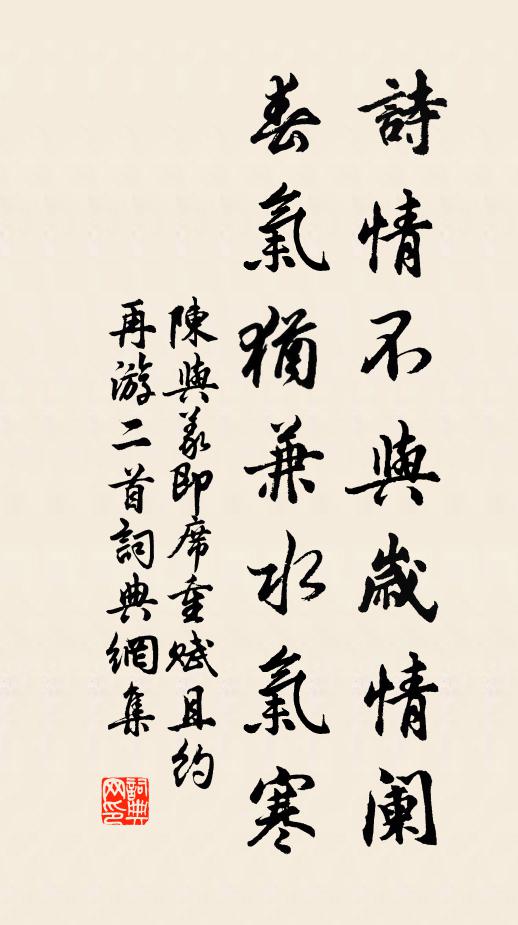 詩情不與歲情闌
春氣猶兼水氣寒
陳與義即席重賦且约
再游二首詞典網集
詞典
网印